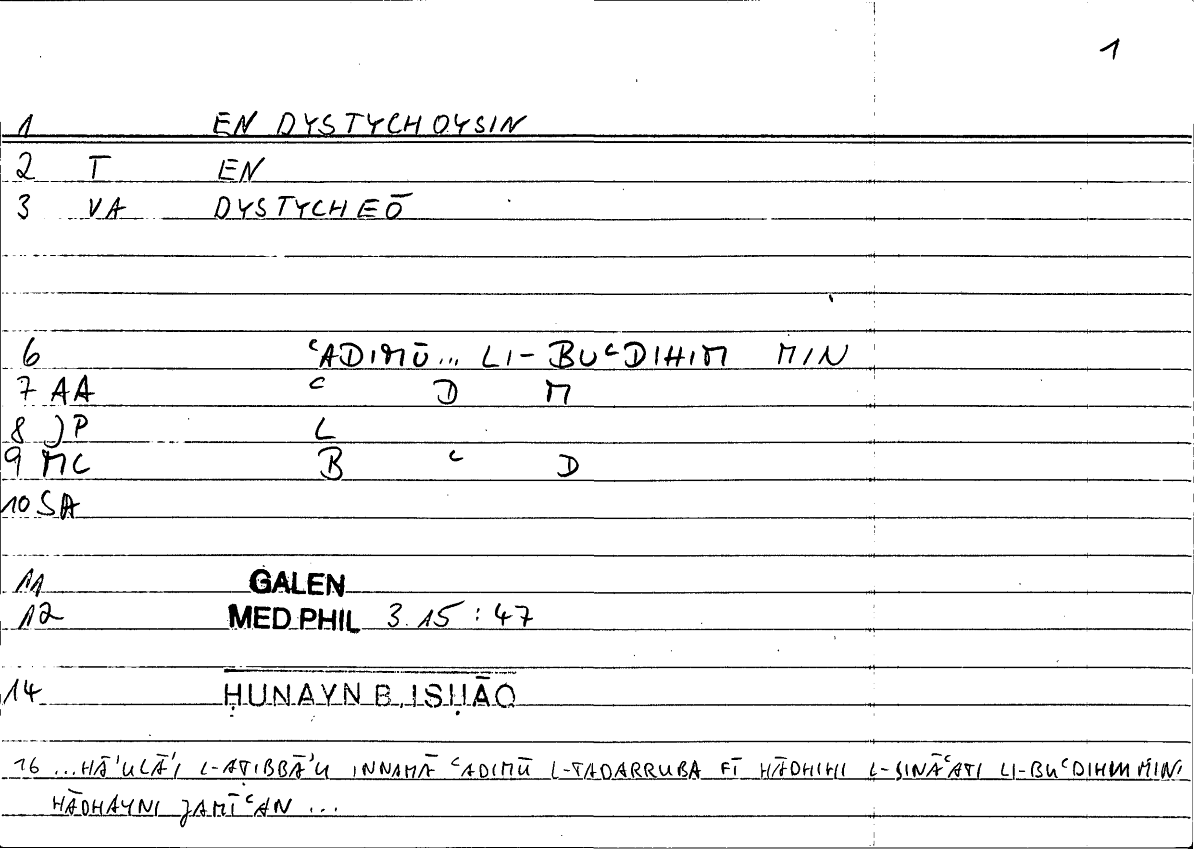 1
1 EN DYSTYCHOYSIN
2 T EN
3 VA DYSTYCHEŌ
6 ᶜADIMŪ... LI-BUᶜDIHIM MIN
7 AA ᶜ D M
8 JP L
9 MC B ᶜ D
10 SA
11 GALEN
12 MED PHIL 3.15 : 47
14 ḤUNAYN B. ISḤĀQ
16 ...HĀ'ULĀ'I L-AṬIBBĀ'U INNAMĀ ᶜADIMŪ L-TADARRUBA FĪ HĀDHIHI L-ṢINĀᶜATI LI-BUᶜDIHIM MINI
HĀDHAYNI JAMĪᶜAN ...